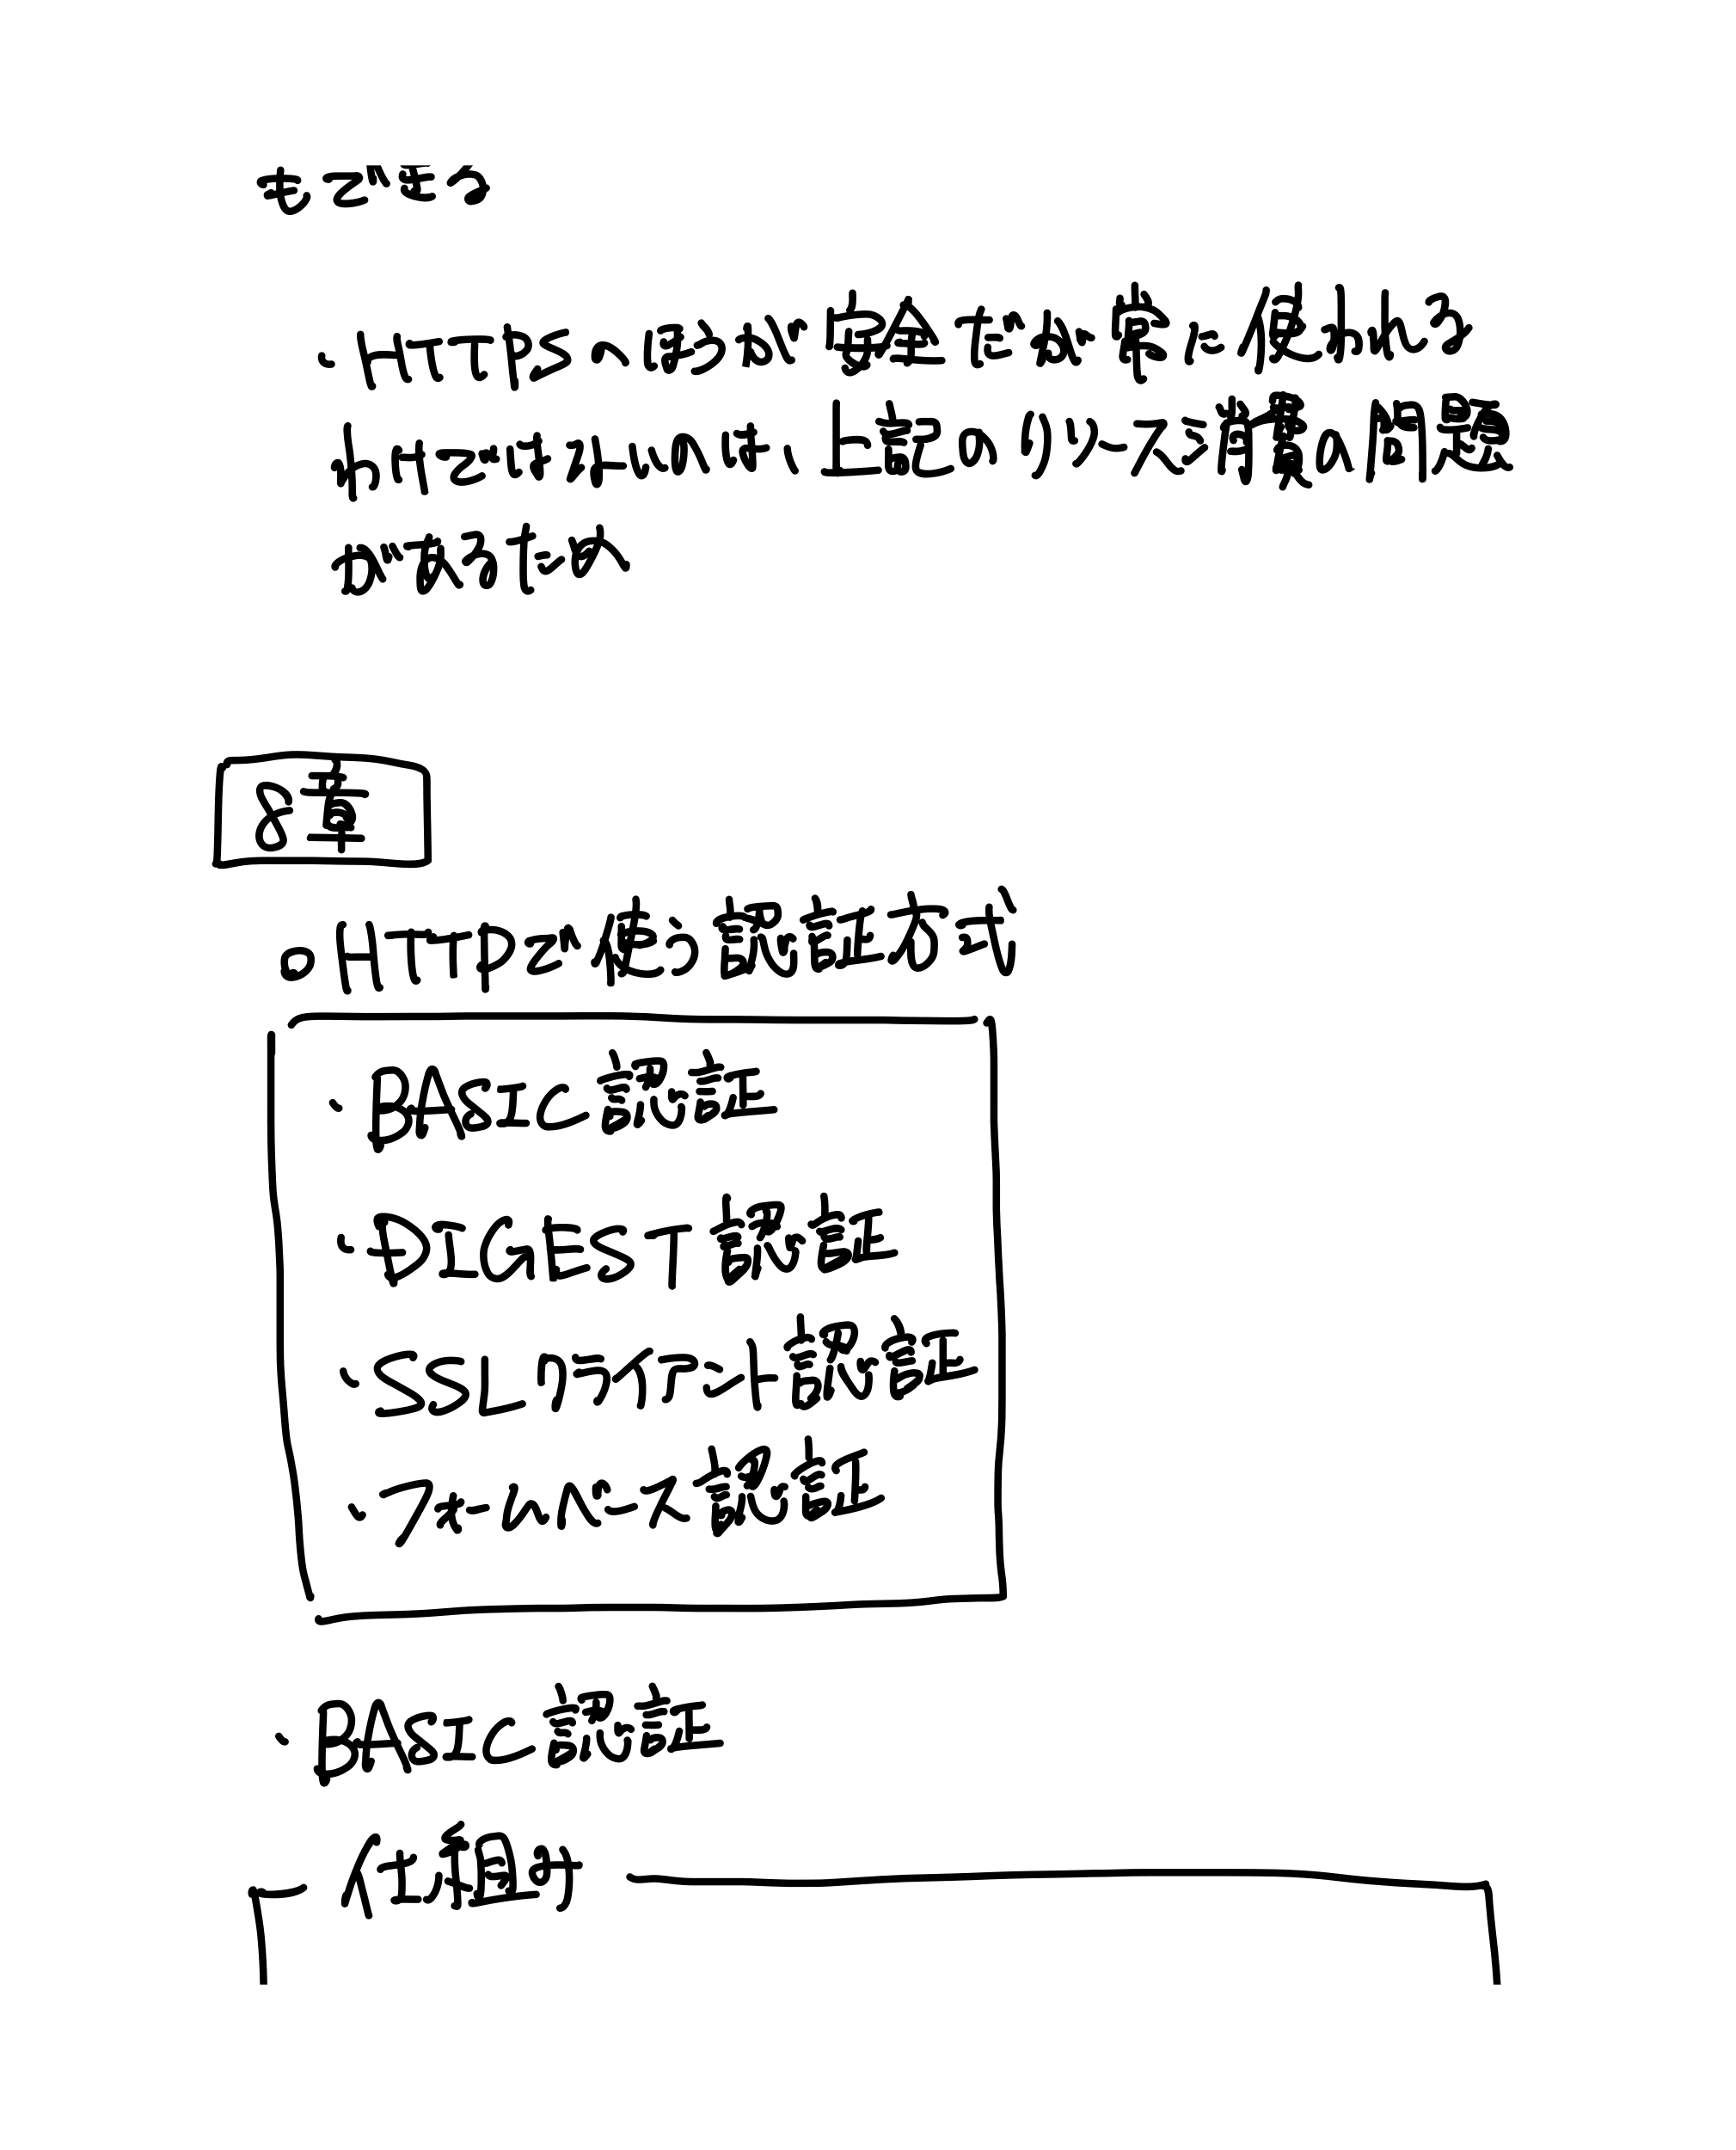 もできる
・HTTPSへのほうが安全だが常に使われる
わけではないのは、上記のリソース消費の問題
があるため
8章
。HTTPで使う認証方式
・BASIC認証
・DIGEST認証
・SSLクライアント認証
・フォームベース認証
・BASIC認証
仕組み